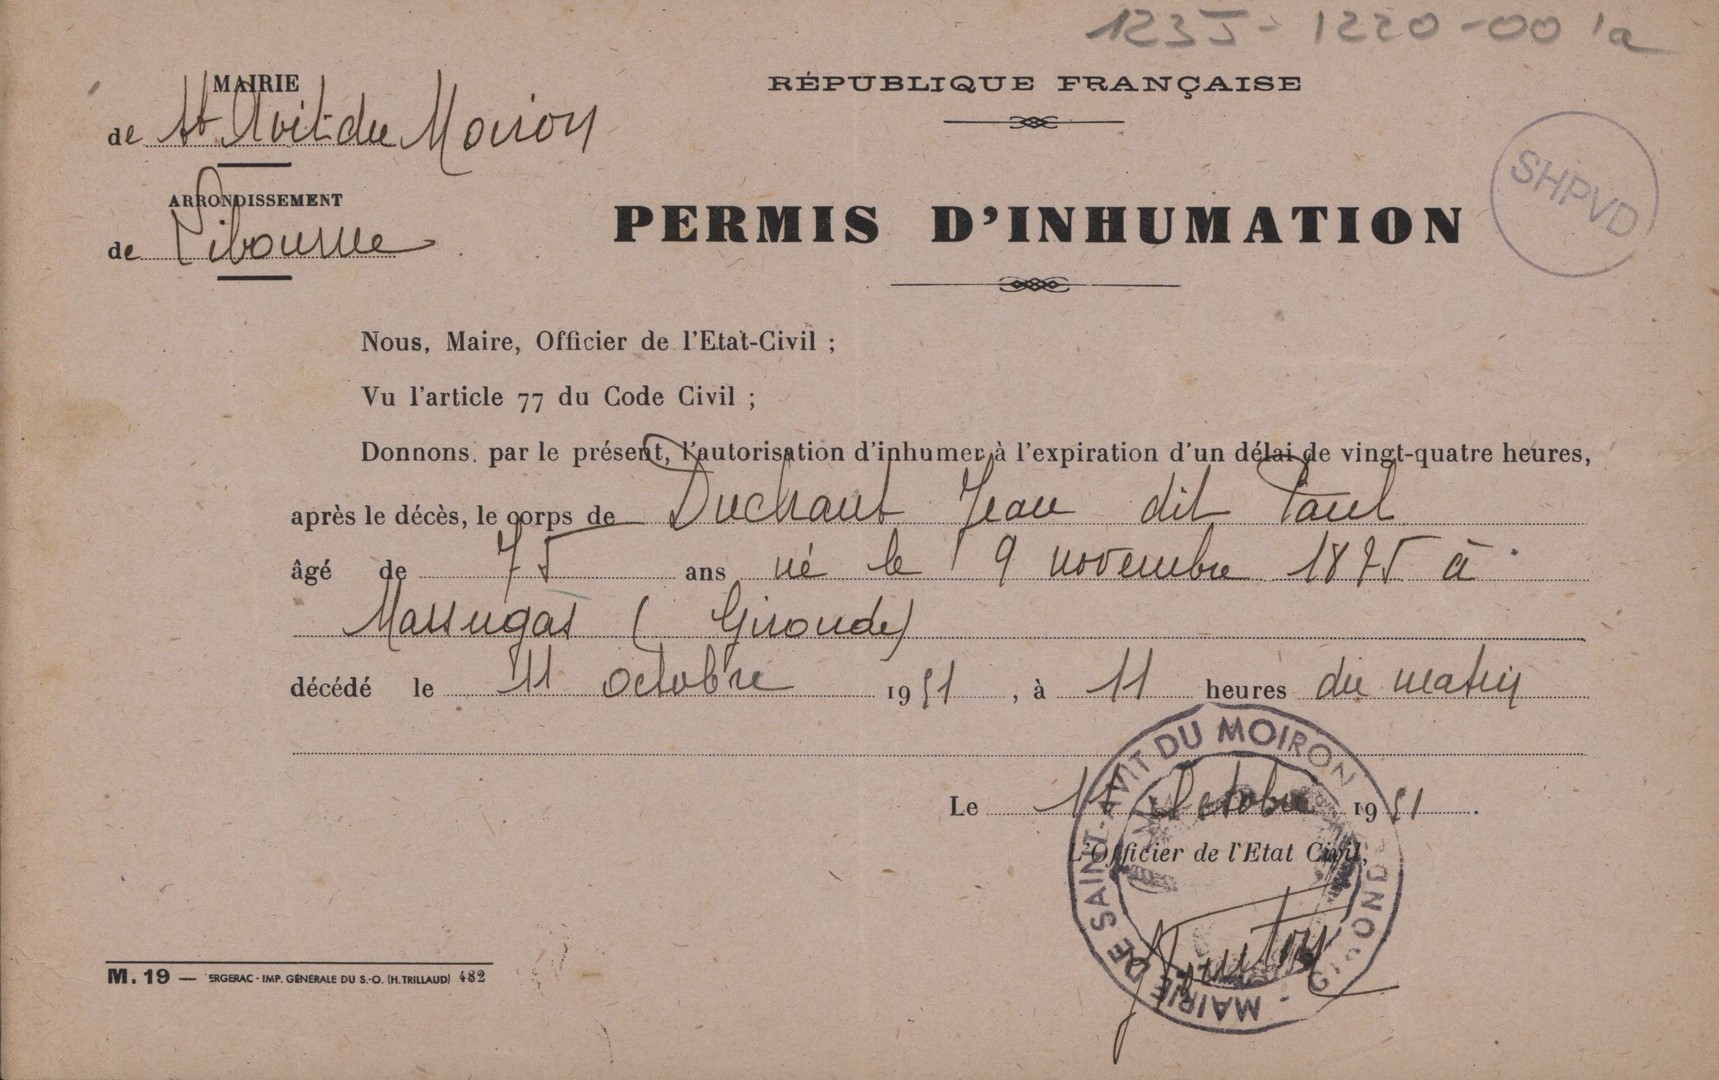 1235-1220-001a
MAIRIE
de St Avit du Moiron
ARRONDISSEMENT
de Libourne
RÉPUBLIQUE FRANÇAISE
SHPVD
PERMIS D'INHUMATION
Nous, Maire, Officier de l'Etat-Civil ;
Vu l'article 77 du Code Civil ;
Donnons, par le présent, l'autorisation d'inhumer à l'expiration d'un délai de vingt-quatre heures,
après le décès, le corps de Duchaut Jean dit Paul
âgé de 75 ans né le 9 novembre 1875 à
Massugas ( Gironde)
décédé le 11 octobre 1951, à 11 heures du matin
Le 11 Octobre 1951.
L'Officier de l'Etat Civil,
MAIRIE DE SAINT-AVIT DU MOIRON - GIRONDE
M. 19 — ERGERAC - IMP. GÉNÉRALE DU S.-O. (H. TRILLAUD) 482